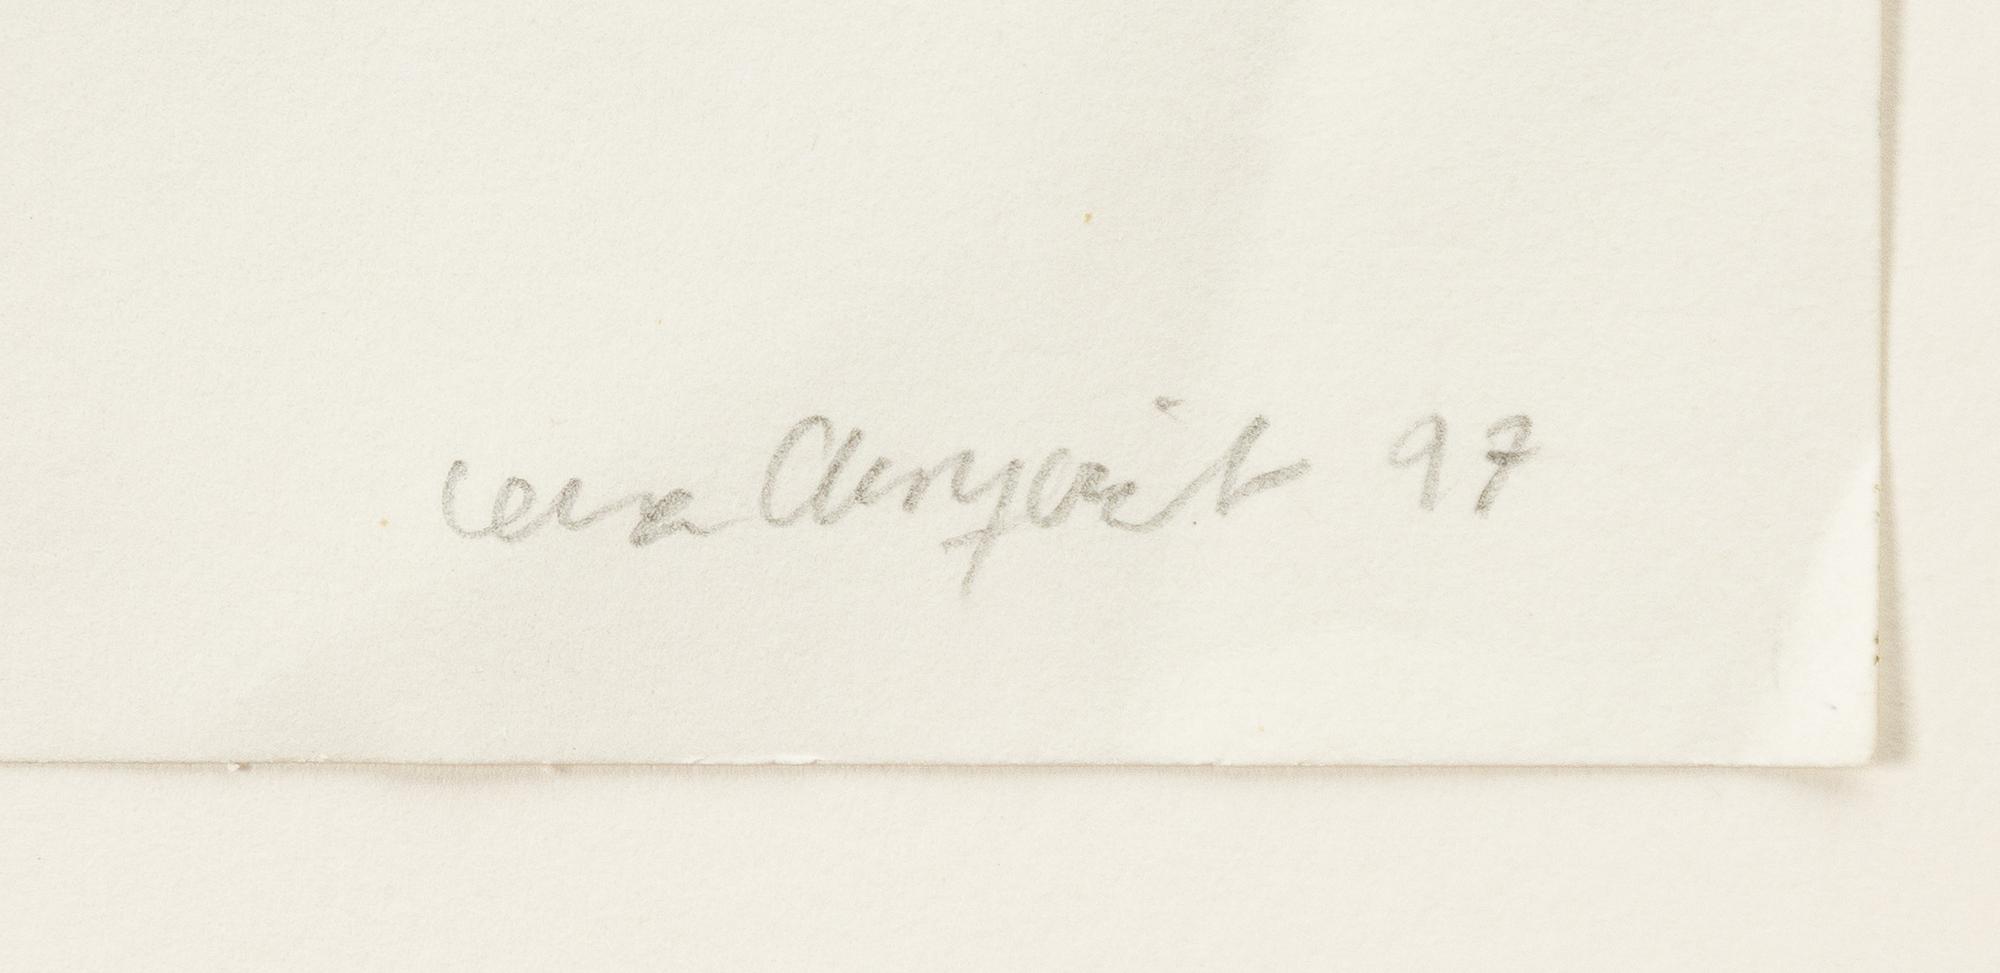 Lena Cronqvist 97